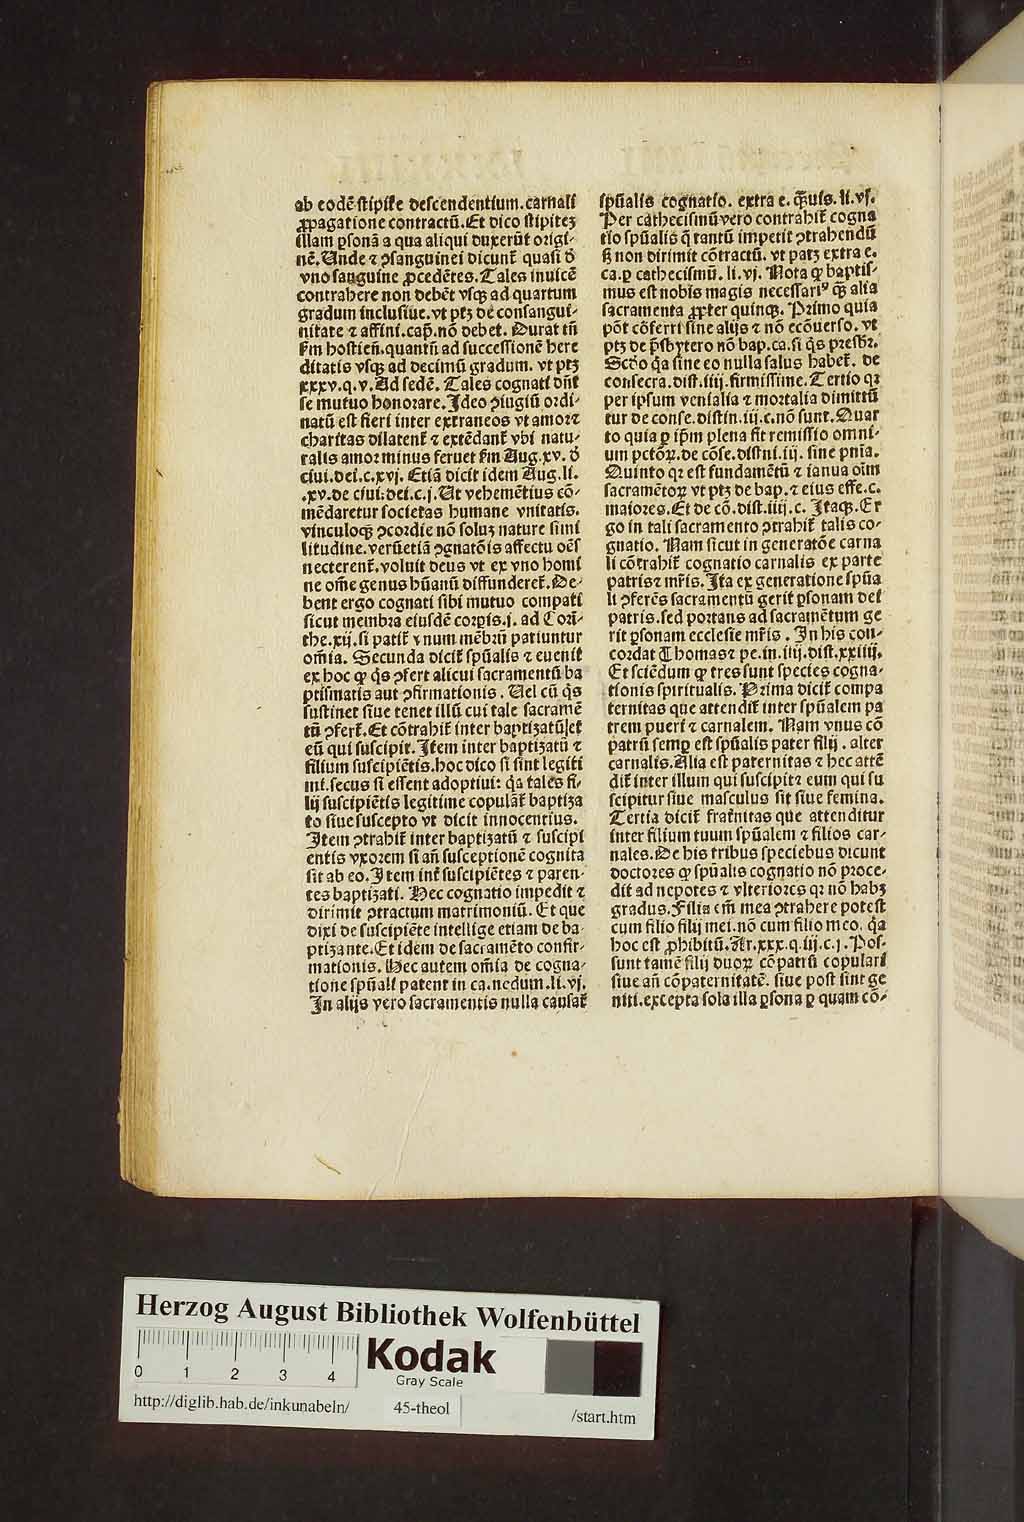 ab eodē stipite descendentium. carnali
ꝓpagatione contractū. Et dico stipitez
illam ꝑsonā a qua aliqui duxerūt origi-
nē. Unde ⁊ ꝯsanguinei dicunt᷑ quasi d̕
vno sanguine ꝓcedētes. Tales inuicē
contrahere non debēt vsqꝫ ad quartum
gradum inclusiue. vt ptꝫ de consangui-
nitate ⁊ affini. cap̄. nō debet. Durat tn̄
ẜm hostien̄. quantū ad successionē here
ditatis vsqꝫ ad decimū gradum. vt ptꝫ
xxxv. q. v. Ad sedē. Tales cognati dn̄t
se mutuo honorare. Ideo ꝯiugiū ordi-
natū est fieri inter extraneos vt amor⁊
charitas dilatent᷑ ⁊ extēdant᷑ vbi natu-
ralis amor minus feruet ẜm Aug. xv. d̕
ciui. dei. c. xvj. Etiā dicit idem Aug. li.
.xv. de ciui. dei. c. j. Ut vehemētius cō-
mēdaretur societas humane vnitatis.
vinculoqꝫ ꝯcordie nō soluꝫ nature simi
litudine. verūetiā ꝯgnatōis affectu oēs
necterent᷑. voluit deus vt ex vno homi
ne om̄e genus hūanū diffunderet᷑. De-
bent ergo cognati sibi mutuo compati
sicut membra eiusdē corpis. j. ad Corī-
the. xij. si patit᷑ vnum mēbrū patiuntur
om̄ia. Secunda dicit᷑ spūalis ⁊ euenit
ex hoc ꝙ q̇s ꝯfert alicui sacramentū ba
ptismatis aut ꝯfirmationis. Uel cū q̇s
sustinet siue tenet illū cui tale sacramē
tū ꝯfert᷑. Et cōtrahit᷑ inter baptizatū ⁊ et
eū qui suscipit. Item inter baptizatū ⁊
filium suscipiētis. hoc dico si sint legiti
mi. secus si essent adoptiui: q̇a tales fi-
lij suscipiētis legitime copulāt᷑ baptiza
to siue suscepto vt dicit innocentius.
Item ꝯtrahit᷑ inter baptizatū ⁊ suscipi
entis vxorem si an̄ susceptionē cognita
sit ab eo. Item int᷑ suscipiētes ⁊ paren-
tes baptizati. Hec cognatio impedit ⁊
dirimit ꝯtractum matrimoniū. Et que
dixi de suscipiēte intellige etiam de ba-
ptizante. Et idem de sacramēto confir-
mationis. Hec autem om̄ia de cogna-
tione spūali patent in ca. nedum. li. vj.
In alijs vero sacramentis nulla causat᷑
spūalis cognatio. extra e. q̄uis. li. vj.
Per cathecismū vero contrahit᷑ cogna
tio spūalis q̄ tantū impetit ꝯtrahendū
ß non dirimit cōtractū. vt patꝫ extra e.
ca. ꝑ cathecismū. li. vj. Nota ꝙ baptis-
mus est nobis magis necessariꝰ q̄ꝫ alia
sacramenta ꝓpter quinqꝫ. Primo quia
pōt cōferri sine alijs ⁊ nō ecōuerso. vt
ptꝫ de p̄sbytero nō bap. ca. si q̇s presbr̄.
Scd̕o q̇a sine eo nulla salus habet᷑. de
consecra. dist. iiij. firmissime. Tertio qꝛ
per ipsum venialia ⁊ mortalia dimittū
tur de conse. distin. iij. c. nō sunt. Quar
to quia ꝑ ip̄m plena fit remissio omni-
um pctōꝝ. de cōse. distni. iij. sine pnīa.
Quinto qꝛ est fundamētū ⁊ ianua oīm
sacramētoꝝ vt ptꝫ de bap. ⁊ eius effe. c.
maiores. Et de cō. dist. iiij. c. Itaqꝫ. Er
go in tali sacramento ꝯtrahit᷑ talis co-
gnatio. Nam sicut in generatōe carna
li cōtrahit᷑ cognatio carnalis ex parte
patris⁊ mr̄is. Ita ex generatione spūa
li ꝯferēs sacramentū gerit ꝑsonam dei
patris. sed portans ad sacramētum ge
rit ꝑsonam ecclesie mr̄is. In his con-
cordat Thomas⁊ pe. in. iiij. dist. xxiiij.
Et sciēdum ꝙ tres sunt species cogna-
tionis spiritualis. Prima dicit᷑ compa
ternitas que attendit᷑ inter spūalem pa
trem pueri ⁊ carnalem. Nam vnus cō
patrū semꝑ est spūalis pater filij. alter
carnalis. Alia est paternitas ⁊ hec attē
dit᷑ inter illum qui suscipit⁊ eum qui su
scipitur siue masculus sit siue femina.
Tertia dicit᷑ frat᷑nitas que attenditur
inter filium tuum spūalem ⁊ filios car-
nales. De his tribus speciebus dicunt
doctores ꝙ spūalis cognatio nō proce-
dit ad nepotes ⁊ vlteriores qꝛ nō habꝫ
gradus. Filia em̄ mea ꝯtrahere potest
cum filio filij mei. nō cum filio meo. q̇a
hoc est ꝓhibitū. Ar. xxx. q. iij. c. j. Pos-
sunt tamē filij duoꝝ cōpatrū copulari
siue an̄ cōpaternitatē. siue post sint ge
niti. excepta sola illa ꝑsona ꝑ quam cō-
Herzog August Bibliothek Wolfenbüttel
0 1 2 3 4
Kodak
Gray Scale
http://diglib.hab.de/inkunabeln/ 45-theol /start.htm